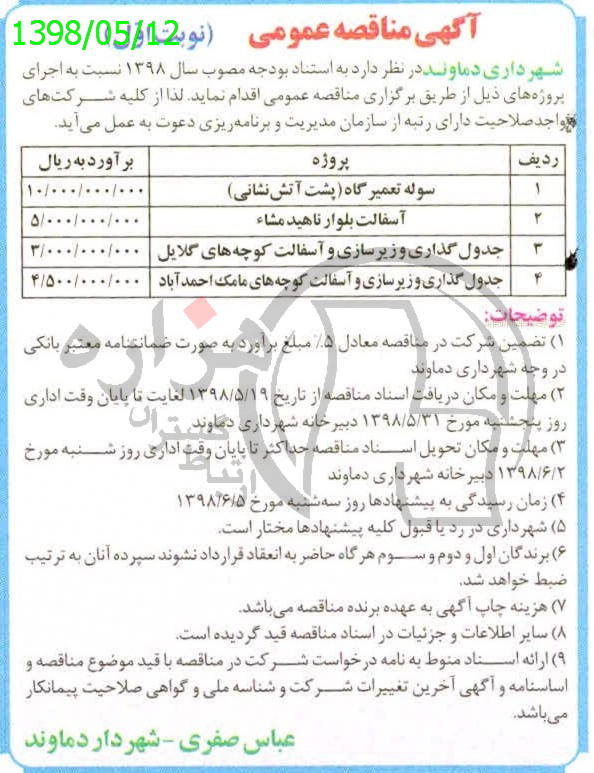 1398/05/12
آگهی مناقصه عمومی (نوبت اول)
شهرداری دماوند در نظر دارد به استناد بودجه مصوب سال ۱۳۹۸ نسبت به اجرای
پروژه‌های ذیل از طریق برگزاری مناقصه عمومی اقدام نماید. لذا از کلیه شرکت‌های
واجدصلاحیت دارای رتبه از سازمان مدیریت و برنامه‌ریزی دعوت به عمل می‌آید.
ردیف پروژه برآورد به ریال
۱ سوله تعمیرگاه (پشت آتش‌نشانی) ۱۰/۰۰۰/۰۰۰/۰۰۰
۲ آسفالت بلوار ناهید مشاء ۵/۰۰۰/۰۰۰/۰۰۰
۳ جدول گذاری و زیرسازی و آسفالت کوچه‌های گلایل ۳/۰۰۰/۰۰۰/۰۰۰
۴ جدول گذاری و زیرسازی و آسفالت کوچه‌های مامک احمدآباد ۴/۵۰۰/۰۰۰/۰۰۰
توضیحات:
۱) تضمین شرکت در مناقصه معادل ۵٪ مبلغ برآورد به صورت ضمانتنامه معتبر بانکی
در وجه شهرداری دماوند
۲) مهلت و مکان دریافت اسناد مناقصه از تاریخ ۱۳۹۸/۵/۱۹ لغایت تا پایان وقت اداری
روز پنجشنبه مورخ ۱۳۹۸/۵/۳۱ دبیرخانه شهرداری دماوند
۳) مهلت و مکان تحویل اسناد مناقصه حداکثر تا پایان وقت اداری روز شنبه مورخ
۱۳۹۸/۶/۲ دبیرخانه شهرداری دماوند
۴) زمان رسیدگی به پیشنهادها روز سه‌شنبه مورخ ۱۳۹۸/۶/۵
۵) شهرداری در رد یا قبول کلیه پیشنهادها مختار است.
۶) برندگان اول و دوم و سوم هرگاه حاضر به انعقاد قرارداد نشوند سپرده آنان به ترتیب
ضبط خواهد شد.
۷) هزینه چاپ آگهی به عهده برنده مناقصه می‌باشد.
۸) سایر اطلاعات و جزئیات در اسناد مناقصه قید گردیده است.
۹) ارائه اسناد منوط به نامه درخواست شرکت در مناقصه با قید موضوع مناقصه و
اساسنامه و آگهی آخرین تغییرات شرکت و شناسه ملی و گواهی صلاحیت پیمانکار
می‌باشد.
عباس صفری - شهردار دماوند
هزاره
گستران
ارتباط